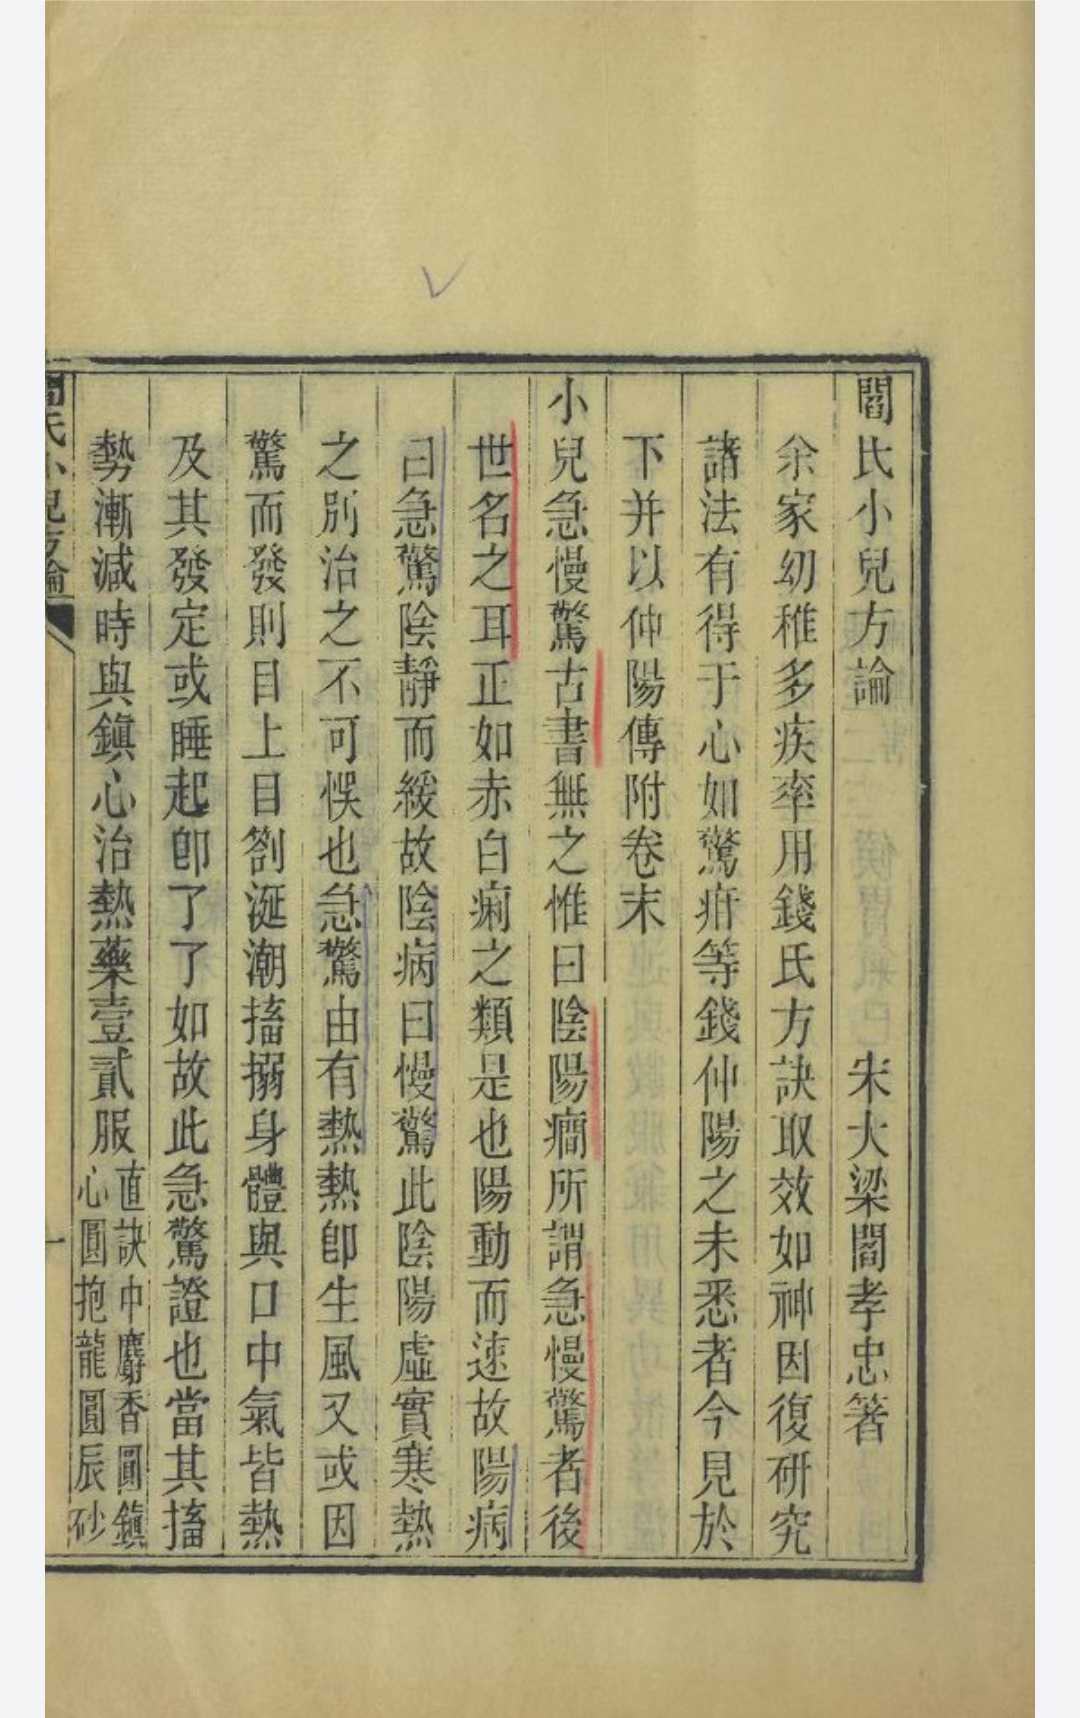 閻氏小兒方論　宋大梁閻孝忠箸
余家幼稚多疾率用錢氏方訣取效如神因復研究
諸法有得于心如驚疳等錢仲陽之未悉者今見於
下并以仲陽傳附卷末
小兒急慢驚古書無之惟曰陰陽癎所謂急慢驚者後
世名之耳正如赤白痢之類是也陽動而速故陽病
曰急驚陰靜而緩故陰病曰慢驚此陰陽虛實寒熱
之別治之不可悞也急驚由有熱熱卽生風又或因
驚而發則目上目劄涎潮搐搦身體與口中氣皆熱
及其發定或睡起卽了了如故此急驚證也當其搐
勢漸減時與鎭心治熱藥壹貳服
直訣中麝香圓鎭
心圓抱龍圓辰砂
閻氏小兒方論
一